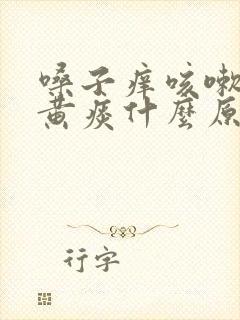 嗓子痒咳嗽
黄痰什麼原
行字